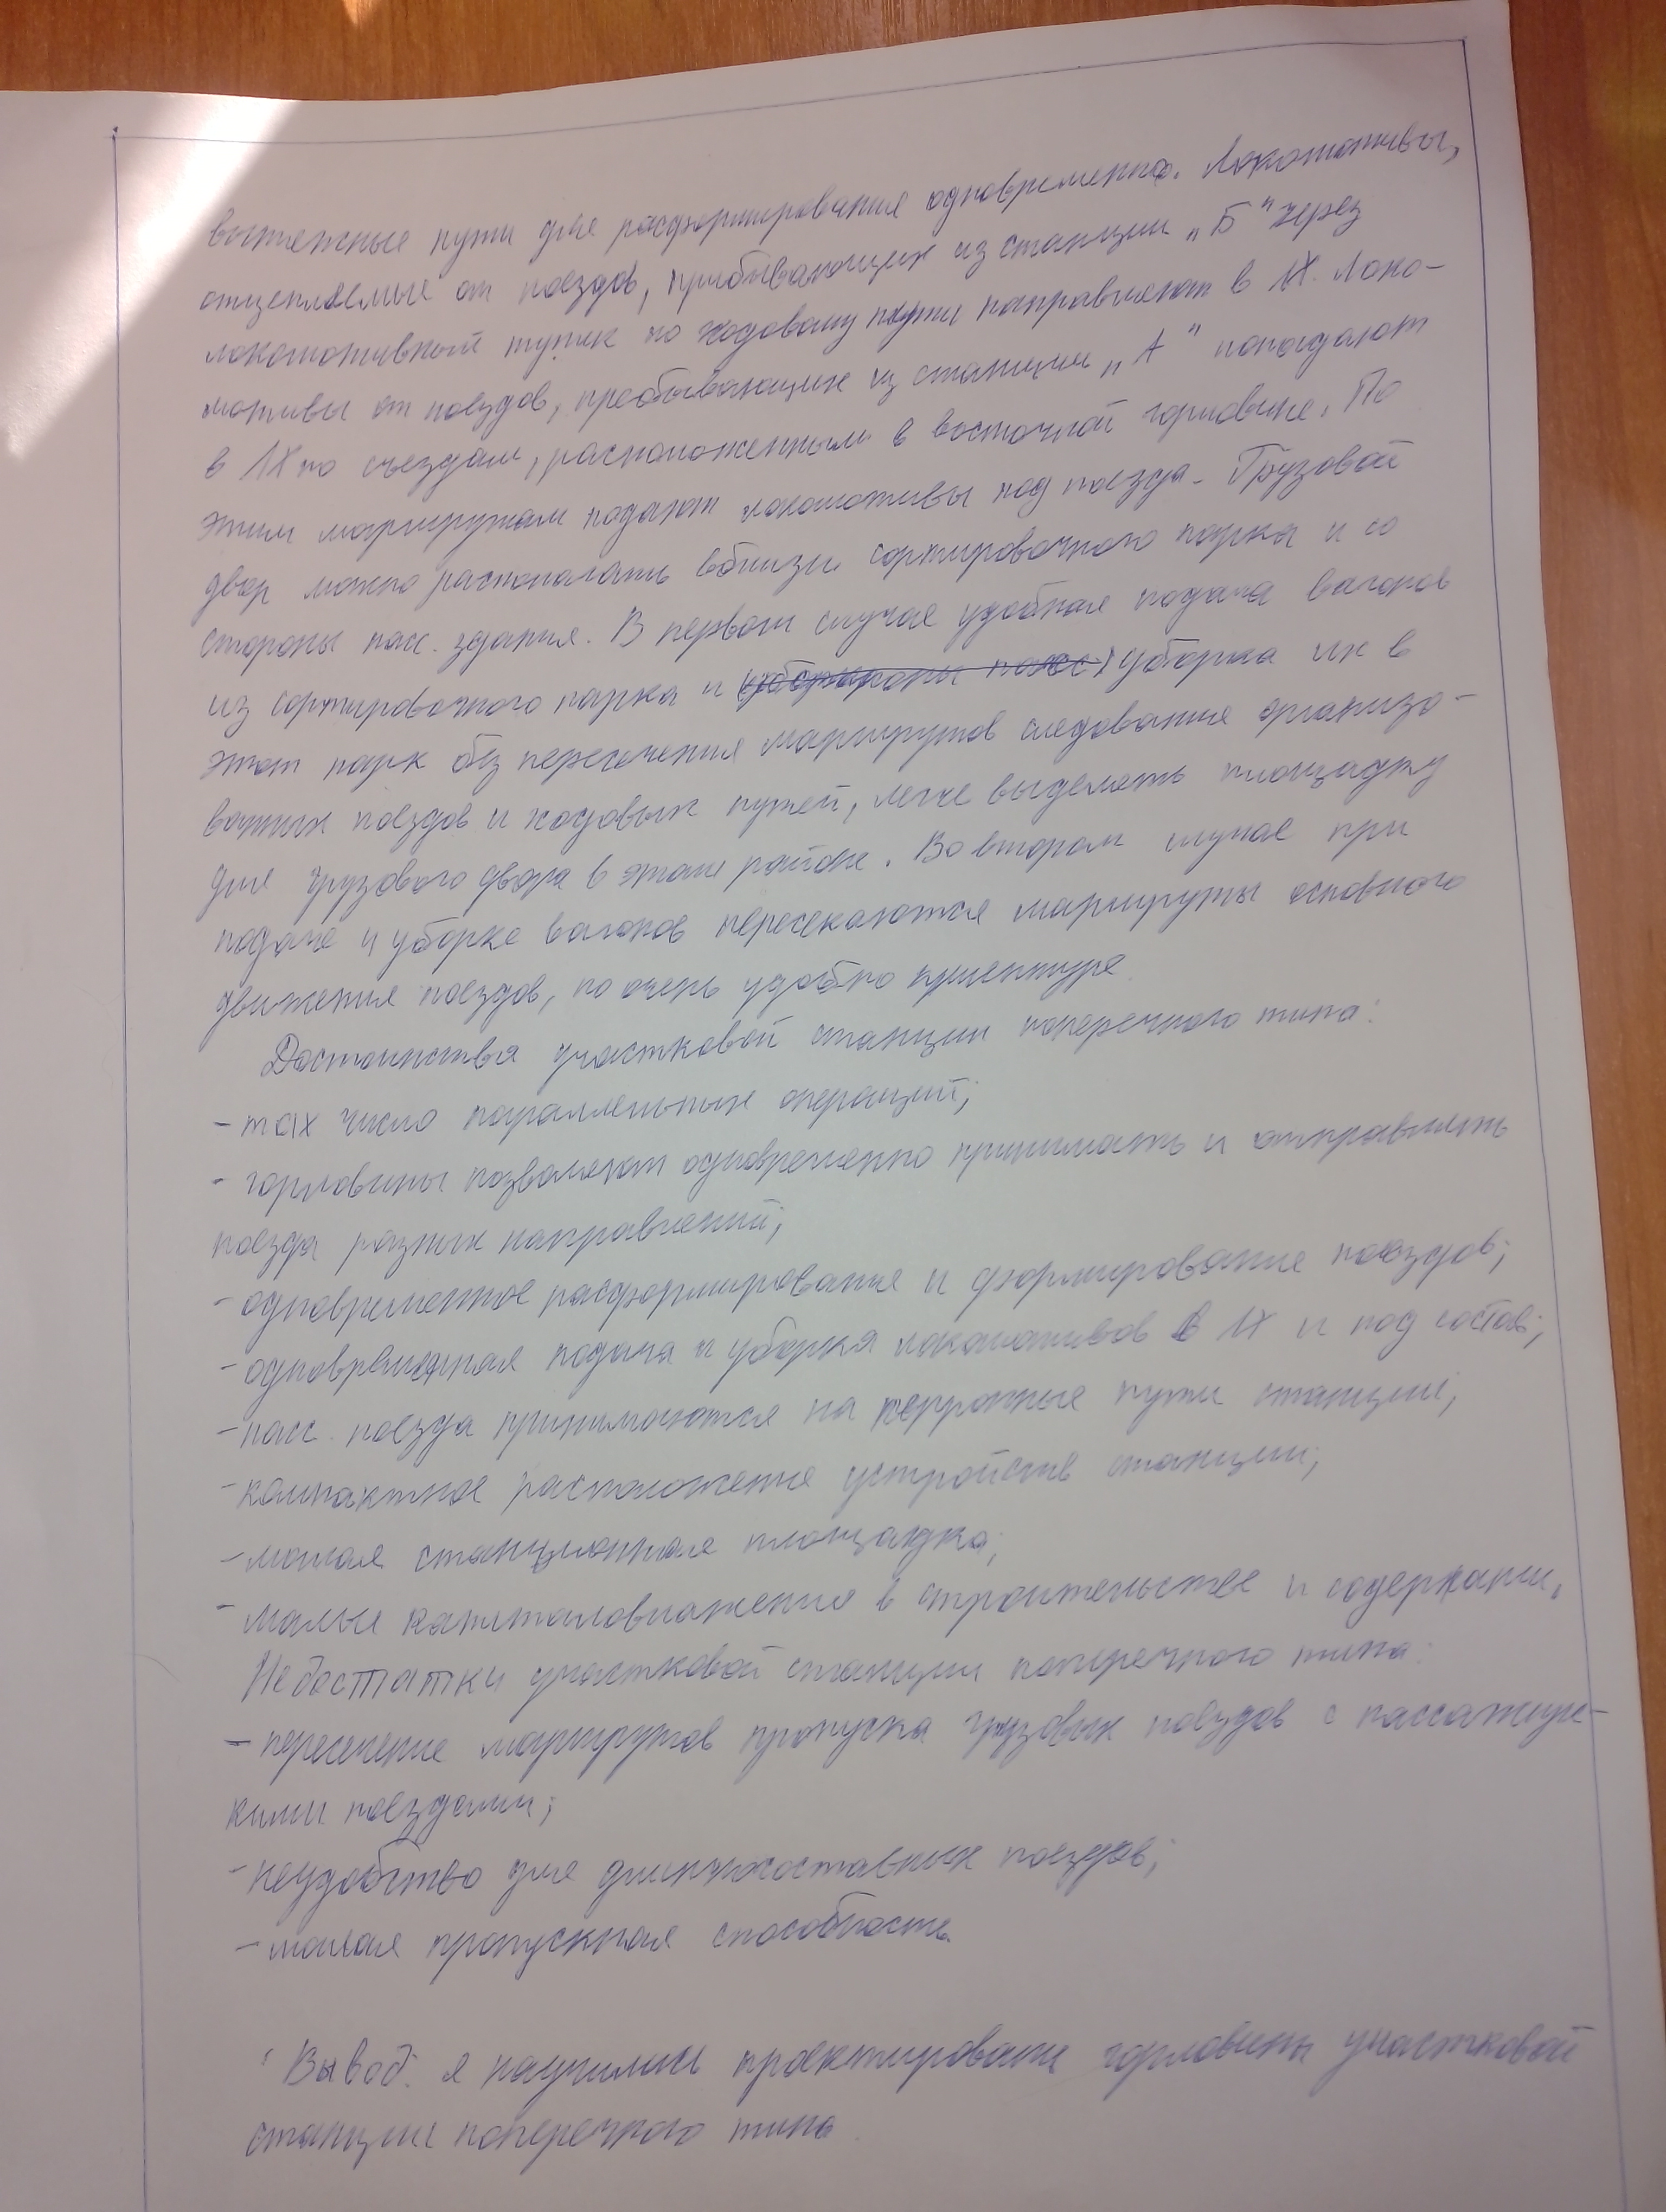 вытяжные пути для расформирования одновременно. Локомотивы,
отцепляемые от поездов, прибывающих из станции „Б" через
локомотивный тупик по ходовому пути направляют в ЛХ. Локо-
мотивы от поездов, пребывающих из станции „А" попадают
в ЛХ по съездам, расположенным в восточной горловине. По
этим маршрутам подают локомотивы под поезда. Грузовой
двор можно располагать вблизи сортировочного парка и со
стороны пасс. здания. В первом случае удобная подача вагонов
из сортировочного парка и уборка их в
этот парк без пересечения маршрутов следования организо-
ванных поездов и ходовых путей, легче выделить площадку
для грузового двора в этом районе. Во втором случае при
подаче и уборке вагонов пересекаются маршруты основного
движения поездов, но очень удобно клиентуре.
Достоинства участковой станции поперечного типа:
- max число параллельных операций;
- горловины позволяют одновременно принимать и отправлять
поезда разных направлений;
- одновременное расформирование и формирование поездов;
- одновременная подача и уборка локомотивов в ЛХ и под состав;
- пасс. поезда принимаются на перронные пути станции;
- компактное расположение устройств станции;
- малая станционная площадка;
- малые капиталовложения в строительстве и содержании.
Недостатки участковой станции поперечного типа:
- пересечение маршрутов пропуска грузовых поездов с пассажирс-
кими поездами;
- неудобство для длинносоставных поездов;
- малая пропускная способность.
Вывод: я научилась проектировать горловины участковой
станции поперечного типа.